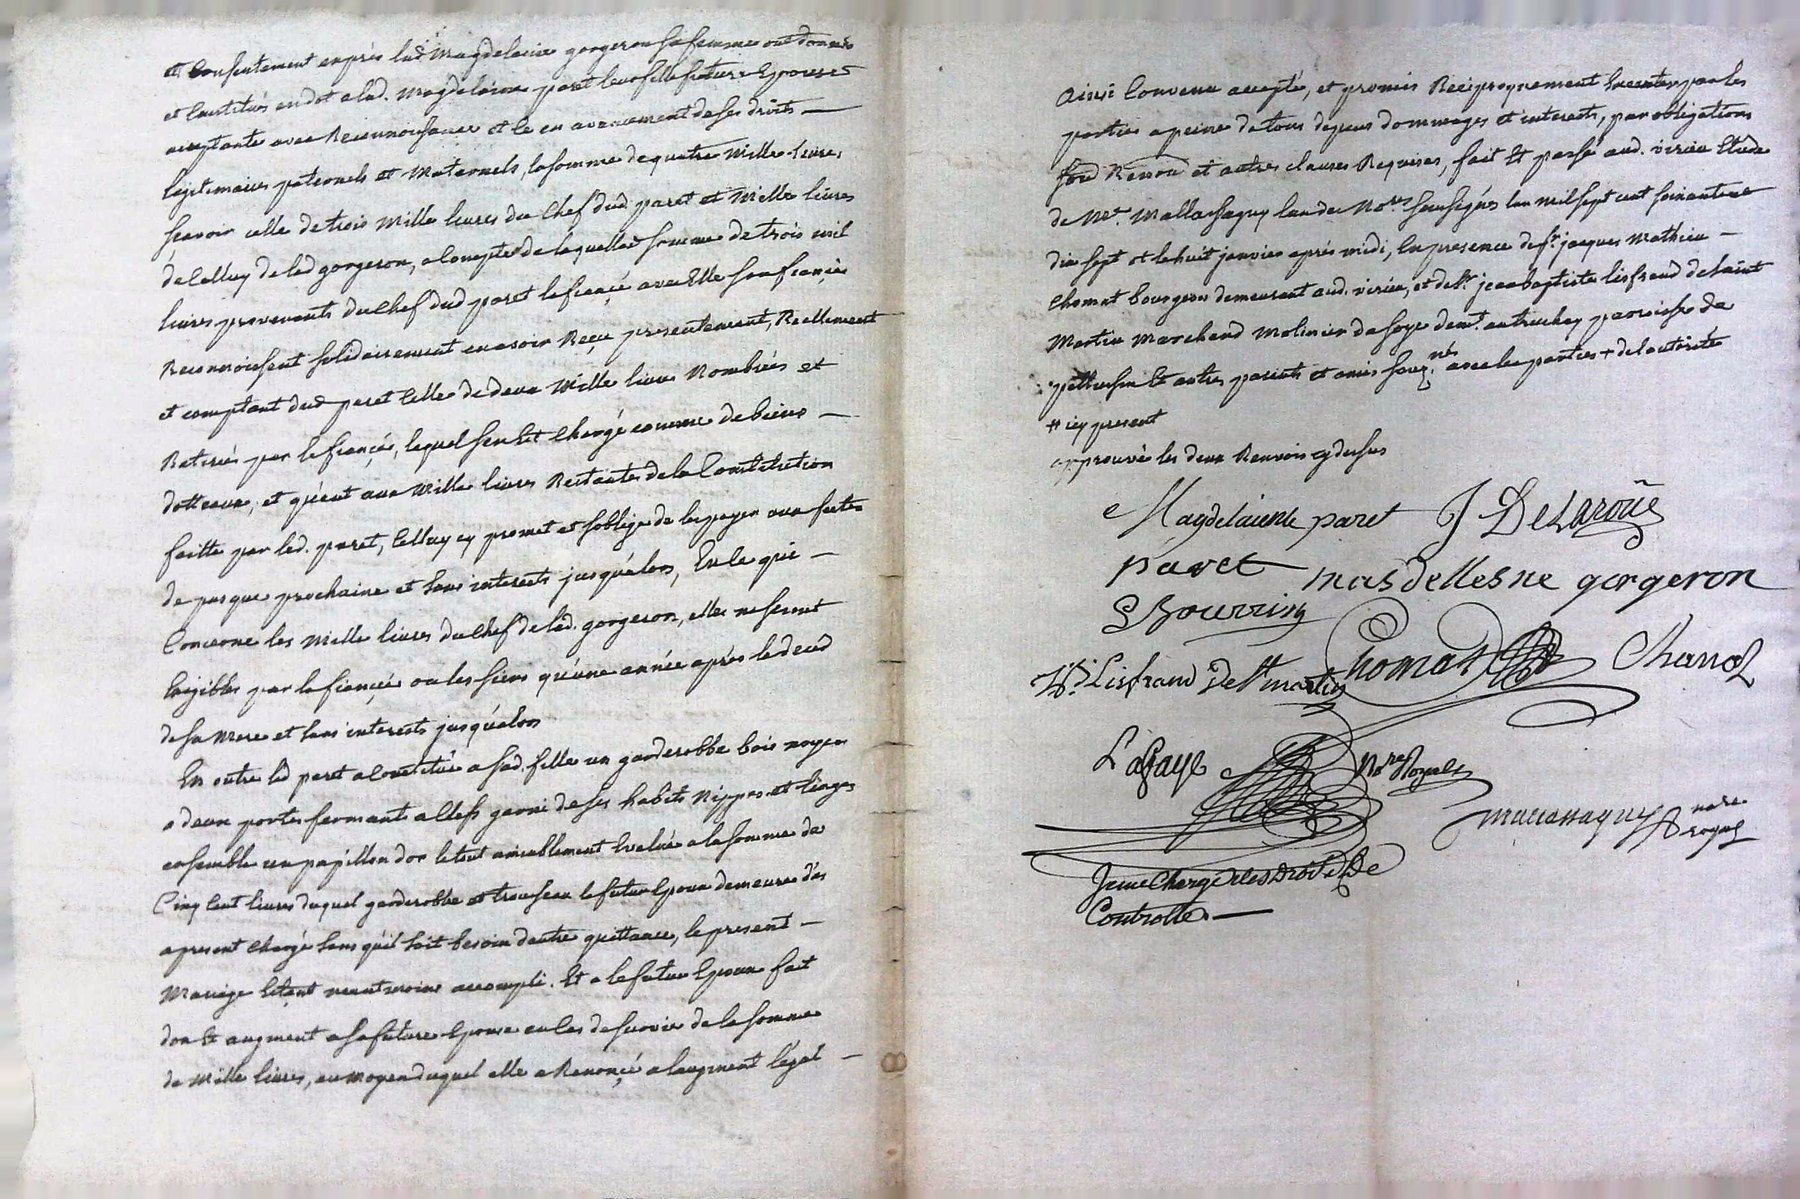 et Consentement exprés lad. Magdelaine gorgeron sa femme ont donnés
et Constitués en dot a lad. Magdelaine paret leur fille future Epouse
acceptante avec Reconnoissance et ce en avancement de ses droits —
legitimaires paternels et Maternels, la somme de quatre Mille livres
scavoir celle de trois Mille livres du Chef dud. paret et Mille livres
de Celluy de lad gorgeron, a Compte de laquelle somme de trois mil
livres provenants du Chef dud paret le fiancé avec lad sa fiancée
Reconnoissent solidairement en avoir Reçu presentement, Reellement
et comptant dud paret Celle de deux Mille livres Nombrées et
Retirées par le fiancé, lequel sen Est Chargé comme de biens —
dotteaux, et quent aux Mille livres Restantes de la Constitution
faitte par led. paret, Celluy cy promet et soblige de les payer aux fetes
de pasque prochaine et sans interests jusqu'alors, En ce qui —
Concerne les Mille livres du Chef de lad. gorgeron, elles ne seront
Exigibles par la fiancée ou les siens qu'une année après le deced
de sa Mere et sans interests jusqu'alors
En outre led paret a Constitué a sad. fille un garderobbe bois noyer
a deux portes fermants a clefs garni de ses habits Nippes et linges
ensemble un papillon d'or le tout amiablement Evalué a la somme de
Cinq Cent livres duquel garderobbe et trousseau le futur Epoux demeure dès
apresent chargé sans qu'il soit besoin d'autre quittance, le present —
Mariage Estant neantmoins accompli. Et a le futur Epoux fait
don Et augment a sa future Epouse en Cas de survie de la somme
de Mille livres, au moyen duquel elle a Renoncé a laugment légal —
Ainsi Convenu accepté, et promis Reciproquement Executer par les
parties a peine de tous depens dommages et interests, par obligations
et autres clauses Requises, fait Et passé aud. virieu Etude
de Me. Mallassagny lun des Nores soussignés lan mil sept cent soixante
dix sept et le huit janvier après midi, En presence de sr. jacques Mathieu —
Chomat bourgeois demeurant aud. virieu, et de sr. jean baptiste lisfrand de saint
Martin Marchand Molinier de soye demt. paroisse de
pellussin Et autres parents et amis souz.nés avec les parties + de l'autorité
# icy present
approuvé les deux Renvois cy dessus
Magdelainne paret J Delaroüe
paret mas dellesne gorgeron
Bourrin
Chomat Chanal
Lisfrand De St martin
Lafaye Nore Royal
mallassagny nore royal
Je me Charge des Droits De
Controlle —